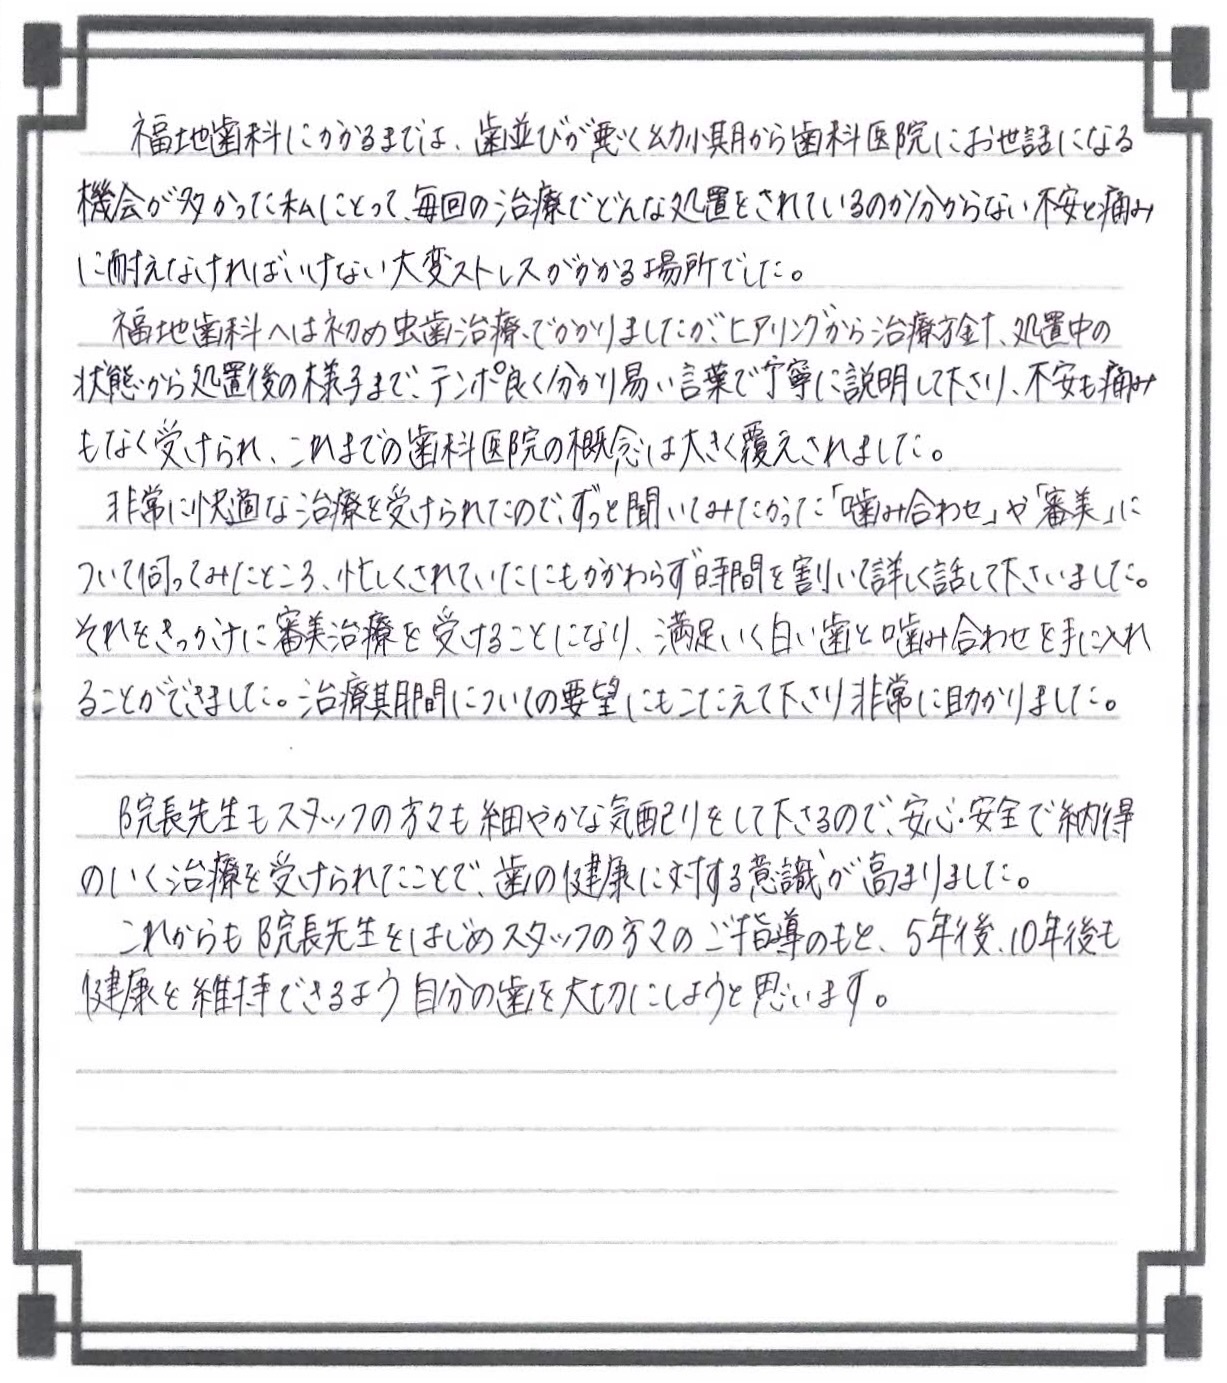 福地歯科にかかるまでは、歯並びが悪く幼少期から歯科医院にお世話になる
機会が多かった私にとって、毎回の治療でどんな処置をされているのか分からない不安と痛み
に耐えなければいけない大変ストレスがかかる場所でした。
福地歯科へは初め虫歯治療でかかりましたが、ヒアリングから治療方針、処置中の
状態から処置後の様子まで、テンポ良く分かり易い言葉で丁寧に説明して下さり、不安も痛み
もなく受けられ、これまでの歯科医院の概念は大きく覆えされました。
非常に快適な治療を受けられたので、ずっと聞いてみたかった「噛み合わせ」や「審美」に
ついて伺ってみたところ、忙しくされていたにもかかわらず時間を割いて詳しく話して下さいました。
それをきっかけに審美治療を受けることになり、満足いく白い歯と噛み合わせを手に入れ
ることができました。治療期間についての要望にもこたえて下さり非常に助かりました。
院長先生もスタッフの方々も細やかな気配りをして下さるので、安心・安全で納得
のいく治療を受けられたことで、歯の健康に対する意識が高まりました。
これからも院長先生をはじめスタッフの方々のご指導のもと、5年後、10年後も
健康を維持できるよう自分の歯を大切にしようと思います。